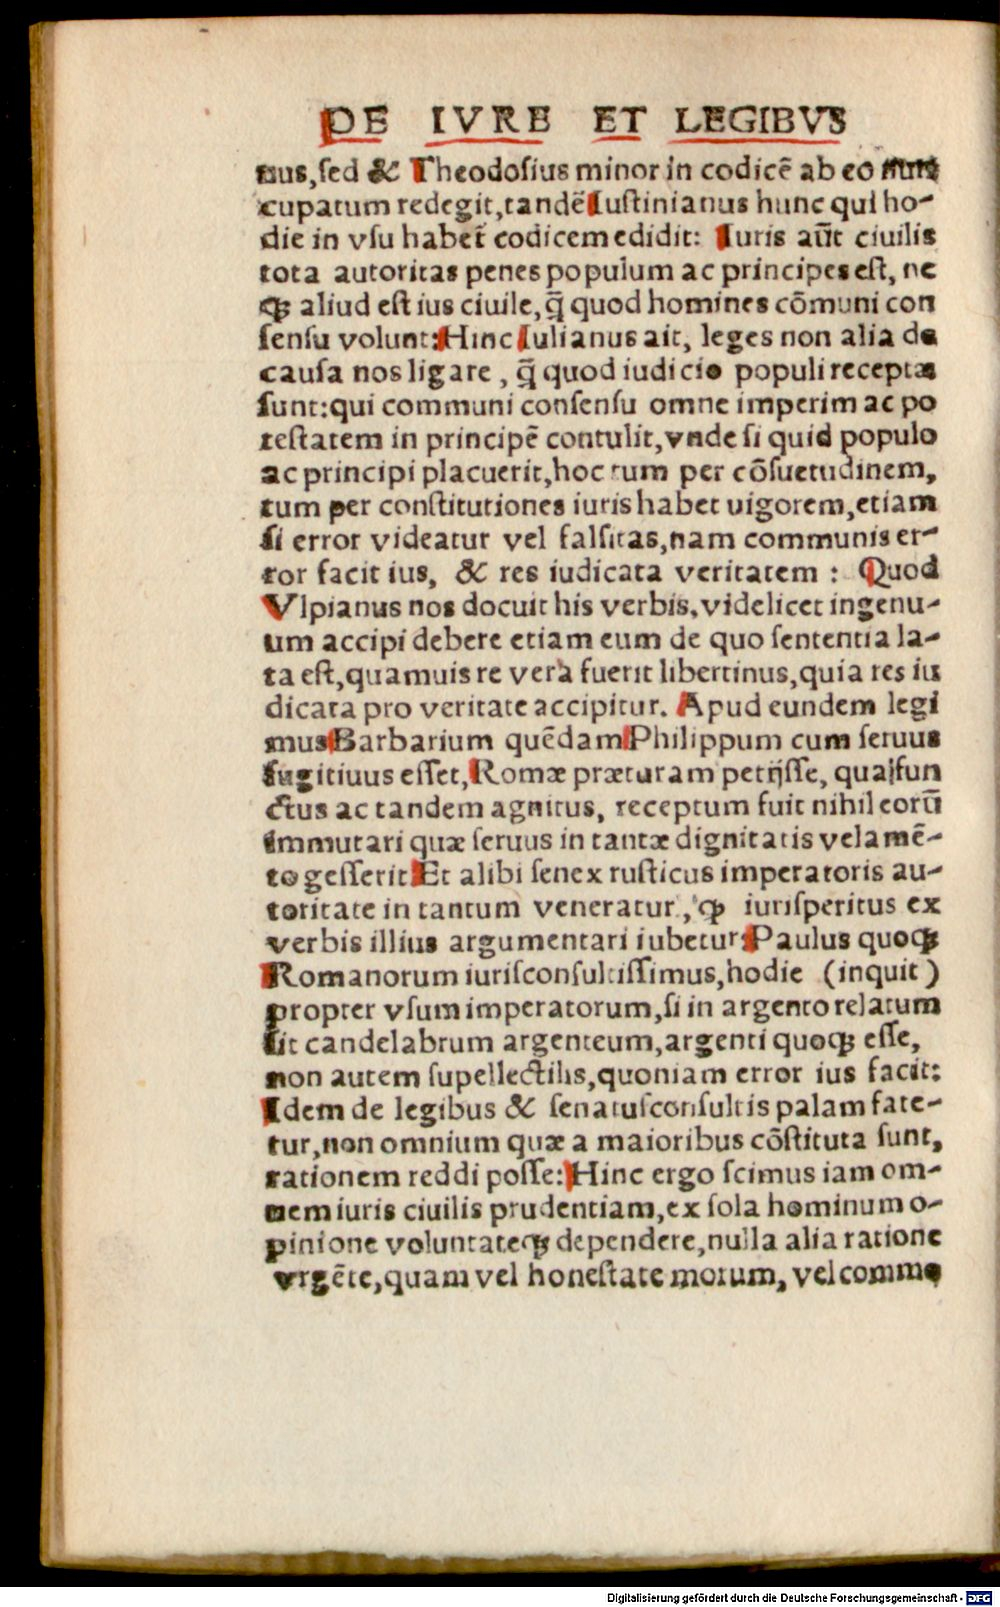 DE IVRE ET LEGIBVS
nus,sed & Theodosius minor in codicē ab eo nun
cupatum redegit,tandē Iustinianus hunc qui ho-
die in vsu habet̄ codicem edidit: Iuris aūt ciuilis
tota autoritas penes populum ac principes est, ne
qꝫ aliud est ius ciuile,q̄ quod homines cōmuni con
sensu volunt: Hinc Iulianus ait, leges non alia de
causa nos ligare , q̄ quod iudicio populi receptæ
sunt:qui communi consensu omne imperim ac po
testatem in principē contulit,vnde si quid populo
ac principi placuerit,hoc tum per cōsuetudinem,
tum per constitutiones iuris habet uigorem,etiam
si error videatur vel falsitas,nam communis er-
ror facit ius, & res iudicata veritatem : Quod
Vlpianus nos docuit his verbis, videlicet ingenu-
um accipi debere etiam eum de quo sententia la-
ta est,quamuis re vera fuerit libertinus,quia res iu
dicata pro veritate accipitur. Apud eundem legi
mus Barbarium quēdam Philippum cum seruus
fugitiuus esset, Romæ præturam petijsse, qua fun
ctus ac tandem agnitus, receptum fuit nihil eorū
immutari quæ seruus in tantæ dignitatis velamē-
to gesserit Et alibi senex rusticus imperatoris au-
toritate in tantum veneratur, ꝙ iurisperitus ex
verbis illius argumentari iubetur: Paulus quoqꝫ
Romanorum iurisconsultissimus,hodie (inquit)
propter vsum imperatorum,si in argento relatum
sit candelabrum argenteum,argenti quoqꝫ esse,
non autem supellectilis,quoniam error ius facit:
Idem de legibus & senatusconsultis palam fate-
tur,non omnium quæ a maioribus cōstituta sunt,
rationem reddi posse: Hinc ergo scimus iam om-
nem iuris ciuilis prudentiam,ex sola hominum o-
pinione voluntateqꝫ dependere,nulla alia ratione
vrgēte,quam vel honestate morum, vel commo
Digitalisierung gefördert durch die Deutsche Forschungsgemeinschaft - DFG